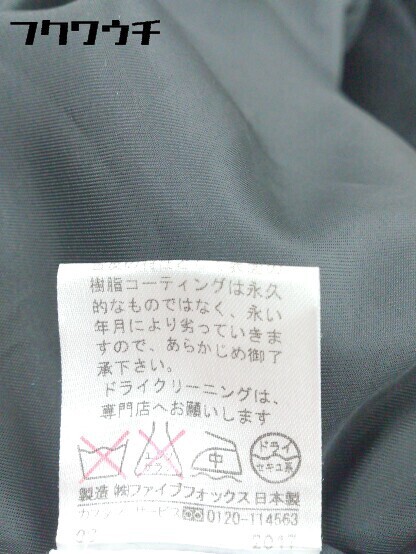 フクワウチ
樹脂コーティングは永久
的なものではなく、永い
年月により劣っていきま
すので、あらかじめ御了
承下さい。
ドライクリーニングは、
専門店へお願いします
エンソ
サラシ
中
ドライ
セキユ系
製造 ㈱ファイブフォックス 日本製
0120-114563